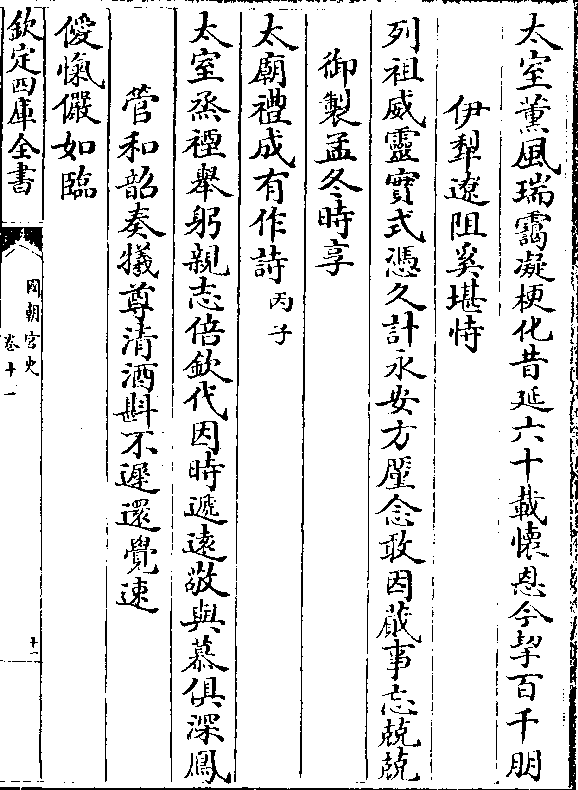 太室薰風瑞靄凝梗化昔延六十載懷恩今挈百千朋
伊犂遼阻奚堪恃
列祖威靈實式憑久計永安方廑念敢因蕆事忘兢兢
御製孟冬時享
太廟禮成有作詩丙子
太室烝禋舉躬親志倍欽代因時遞遠敬與慕俱深鳳
管和韶奏犧尊清酒斟不遲還覺速
僾愾儼如臨
欽定四庫全書
國朝宮史
卷十一
十一